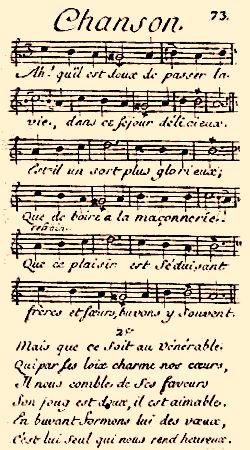 Chanson. 73.
Ah! qu'il est doux de passer la
vie, dans ce séjour délicieux.
Est-il un sort plus glorieux,
Que de boire a la maçonnerie.
refrain.
Que ce plaisir est séduisant
frères et sœurs, buvons y souvent.
2e
Mais que ce soit au vénérable
Qui par ses loix charme nos cœurs,
Il nous comble de ses faveurs
Son joug est doux, il est aimable.
En buvant formons lui des vœux,
C'est lui seul qui nous rend heureux.